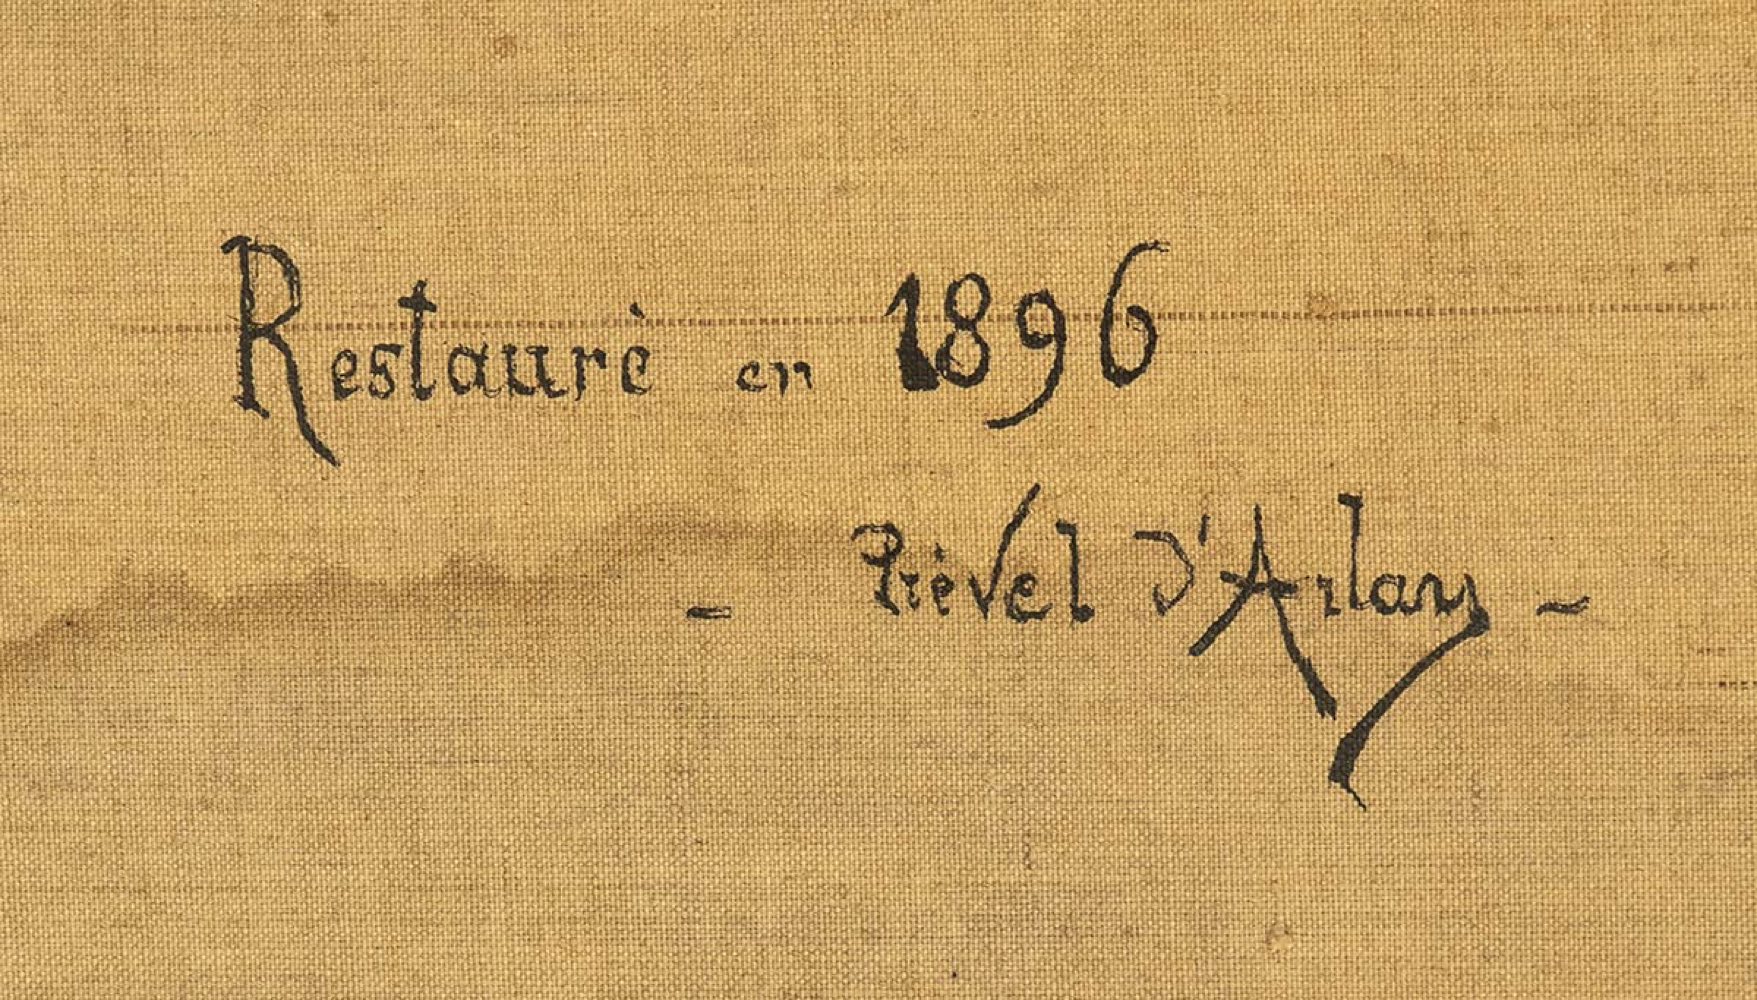 Restauré en 1896
- Prével D'Arlay -